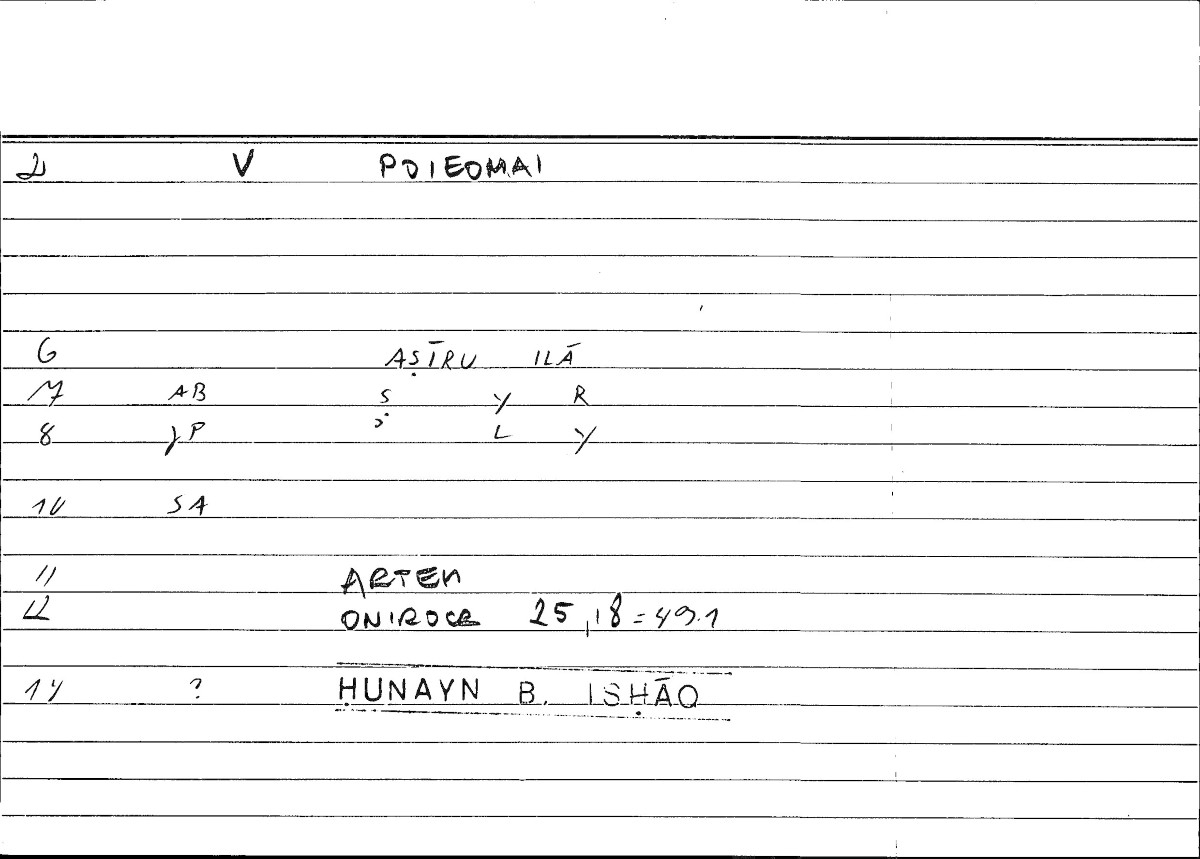 2 V POIEOMAI
6 AṢĪRU ILĀ
7 AB S Y R
8 γP ʾ L Y
10 SA
11 ARTEM
12 ONIROCR 25,18=49.1
14 ? ḤUNAYN B. ISḤĀQ